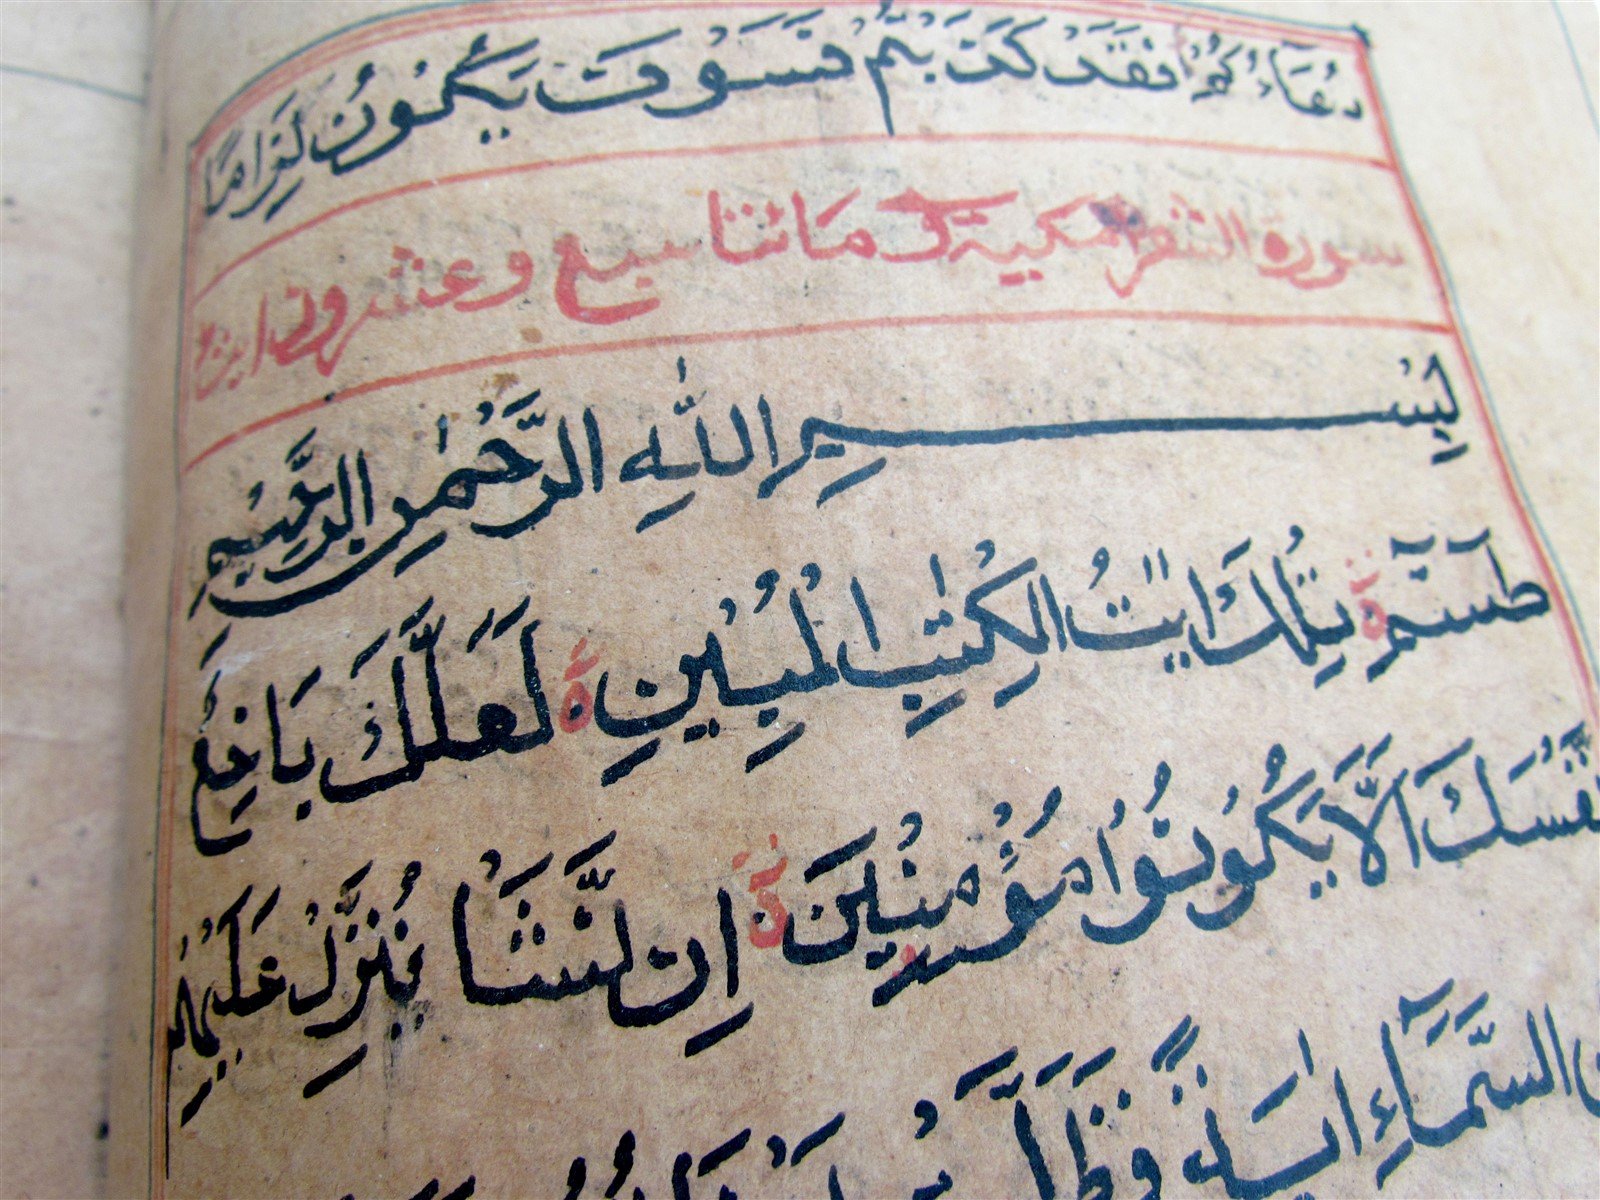 دُعَاؤُكُمْ فَقَدْ كَذَّبْتُمْ فَسَوْفَ يَكُوْنُ لِزَامًا
سورة الشعرا مكية وهى مائتا سبع وعشرون اية
بِسْمِ اللّٰهِ الرَّحْمٰنِ الرَّحِيْمِ
طٰسٓمّٓ ۃ تِلْكَ اٰيٰتُ الْكِتٰبِ الْمُبِيْنِ ۃ لَعَلَّكَ بَاخِعٌ
نَّفْسَكَ اَلَّا يَكُوْنُوْا مُؤْمِنِيْنَ ۃ اِنْ نَّشَاْ نُنَزِّلْ عَلَيْهِمْ
السَّمَآءِ اٰيَةً فَظَلَّتْ